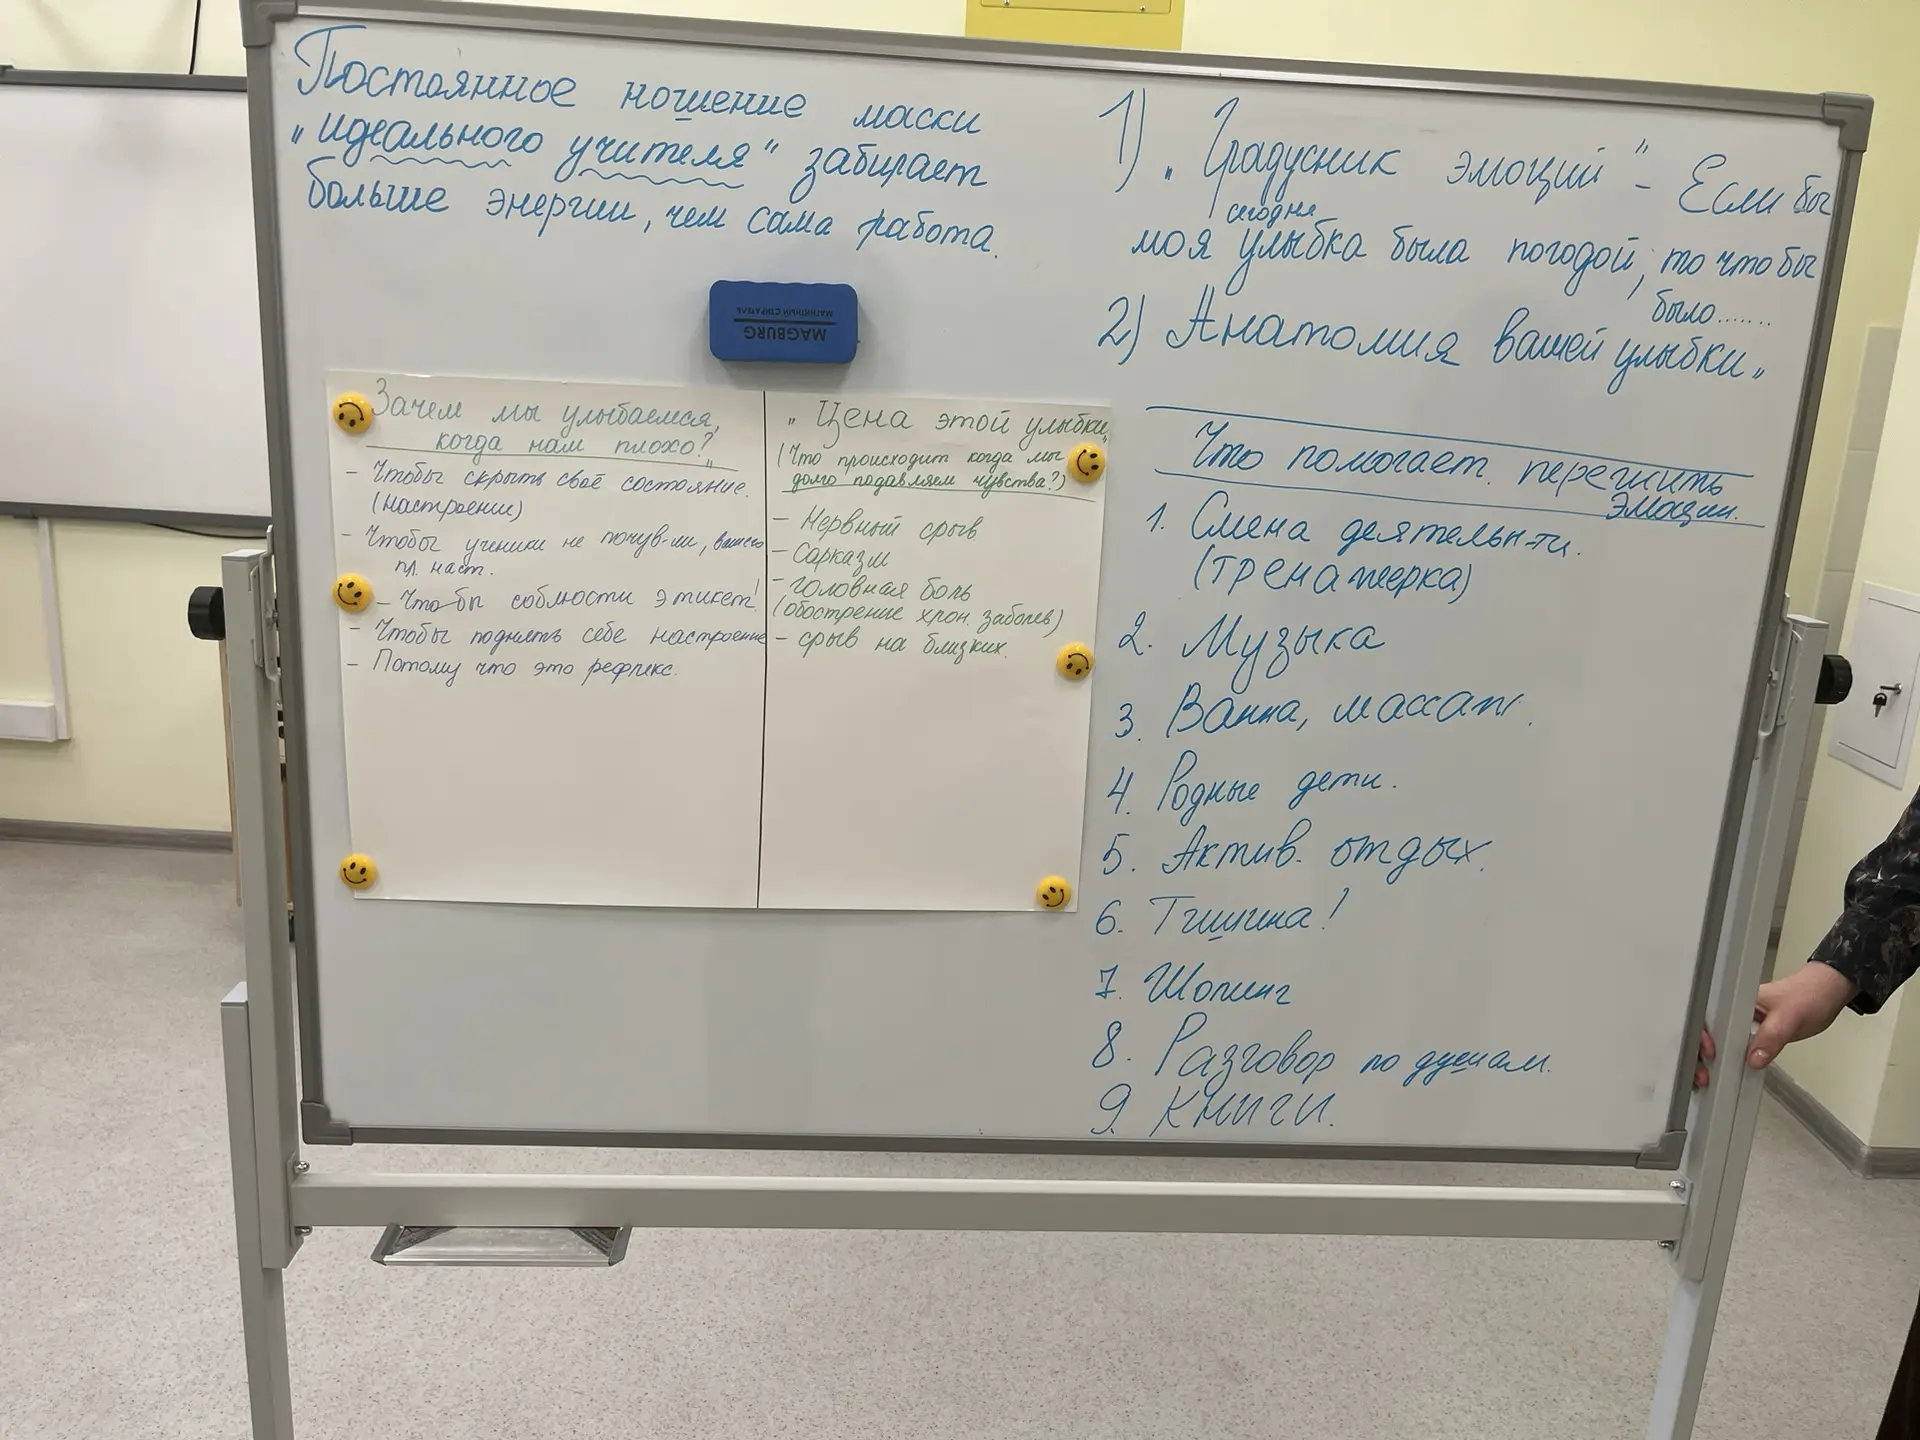 Постоянное ношение маски
"идеального учителя" забирает
больше энергии, чем сама работа.
MAGBURG
МАГНИТНЫЙ СТИРАТЕЛЬ
Зачем мы улыбаемся,
когда нам плохо?"
- Чтобы скрыть своё состояние.
(настроении)
- Чтобы ученики не почув-ли, вашего
пл. наст.
- Что бы соблюсти этикет!
- Чтобы поднять себе настроение
- Потому что это рефлекс.
"Цена этой улыбки"
(Что происходит когда мы
долго подавляем чувства?)
- Нервный срыв
- Сарказм
- головная боль
(обострение хрон. заболев)
- срыв на близких.
1) "Градусник эмоций" - Если бы
сегодня
моя улыбка была погодой, то что бы
было.......
2) Анатомия вашей улыбки"
Что помогает пережить
эмоции.
1. Смена деятельн-ти.
(тренажерка)
2. Музыка
3. Ванна, массаж.
4. Родные дети.
5. Актив. отдых.
6. Тишина!
7. Шопинг
8. Разговор по душам.
9. Книги.